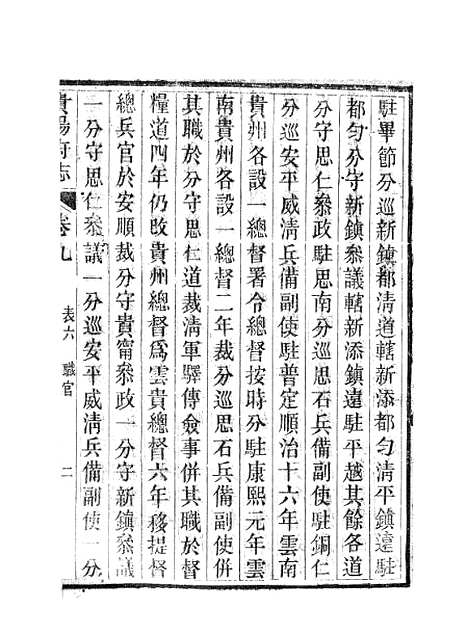 駐畢節分巡新鎮都清道轄新添都勻清平鎮遠駐
都勻分守新鎮叅議轄新添鎮遠駐平越其餘各道
分守思仁叅政駐思南分巡思石兵備副使駐銅仁
分巡安平威清兵備副使駐普定順治十六年雲南
貴州各設一總督署令總督按時分駐康熙元年雲
南貴州各設一總督二年裁分巡思石兵備副使併
其職於分守思仁道裁清軍驛傳僉事併其職於督
糧道四年仍改貴州總督爲雲貴總督六年移提督
總兵官於安順裁分守貴甯叅政一分守新鎮叅議
一分守思仁叅議一分巡安平威清兵備副使一分
貴陽府志
卷九
表六 職官
二